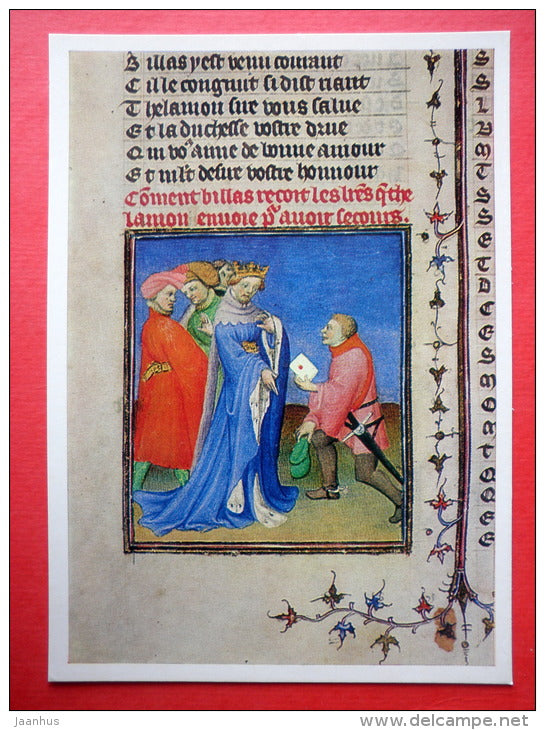 Billas yest venu courant
Cil le congnuit si dist riant
Thelamon sire vous salue
Et la duchesse vostre drue
Qui vo⁹ aime de bonne amour
Et m̃lt desire vostre honnour
Cõment billas recoit les lr̃es q̃ the
lamon envoie pʳ avoir secours.
S
S
L
V
M
T
S
S
E
T
D
C
E
S
M
O
N
T
Jaanhus
www.delcampe.net